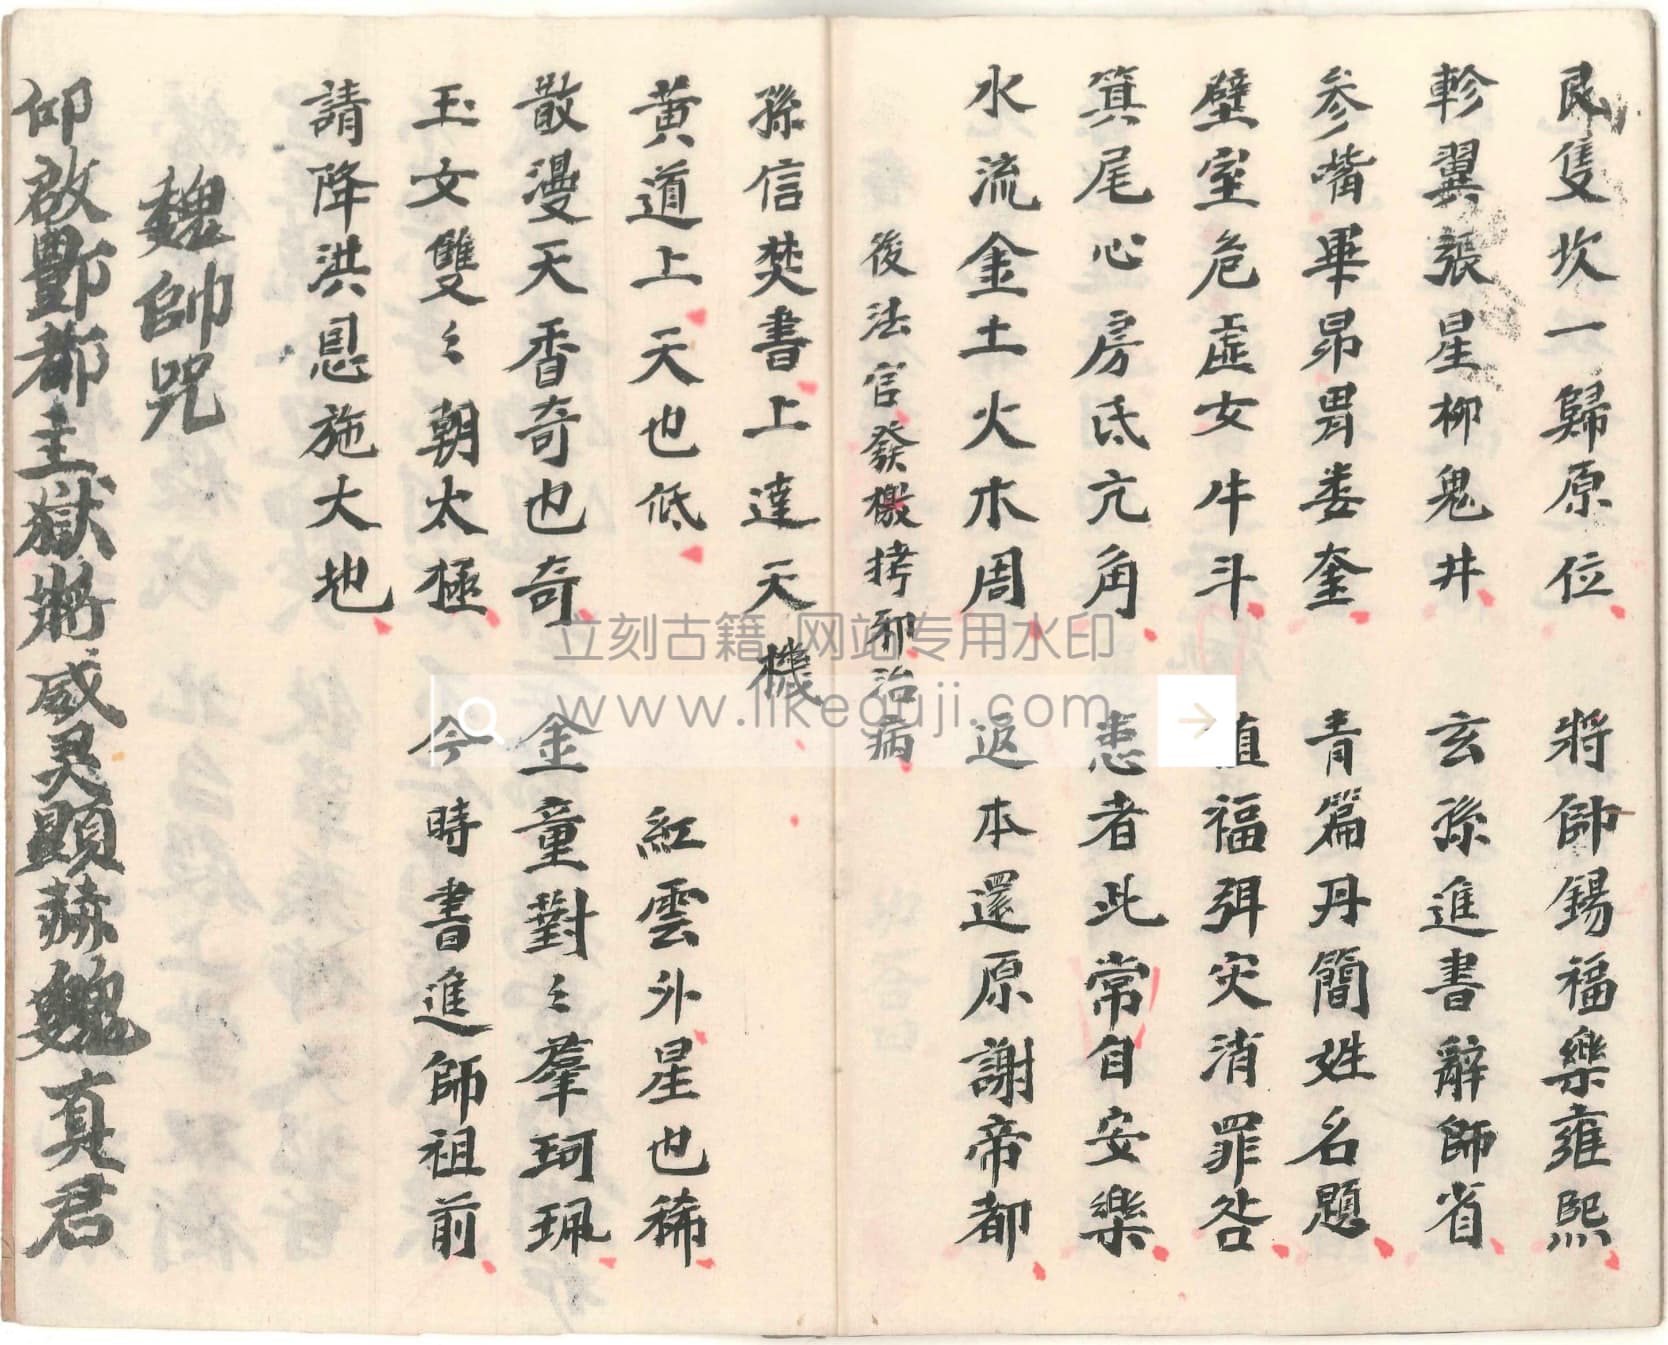 艮隻坎一歸原位　將帥錫福樂雍熙
軫翼張星柳鬼井　玄孫進書辭師省
参嘴畢昴胃娄奎　青篇丹簡姓名題
壁室危虚女牛斗　植福弭灾消罪咎
箕尾心房氐亢角　患者此常自安樂
水流金土火木周　返本還原謝帝都
後法官發檄拷邪治病
孫信焚書上達天機
黄道上天也低　紅雲外星也稀
散漫天香奇也奇　金童對〻羣珂珮
玉女雙〻朝太極　今時書進師祖前
請降洪恩施大地
魏帥咒
仰啟酆都主獄將威灵顯赫魏真君
立刻古籍 网站专用水印
www.likeguji.com